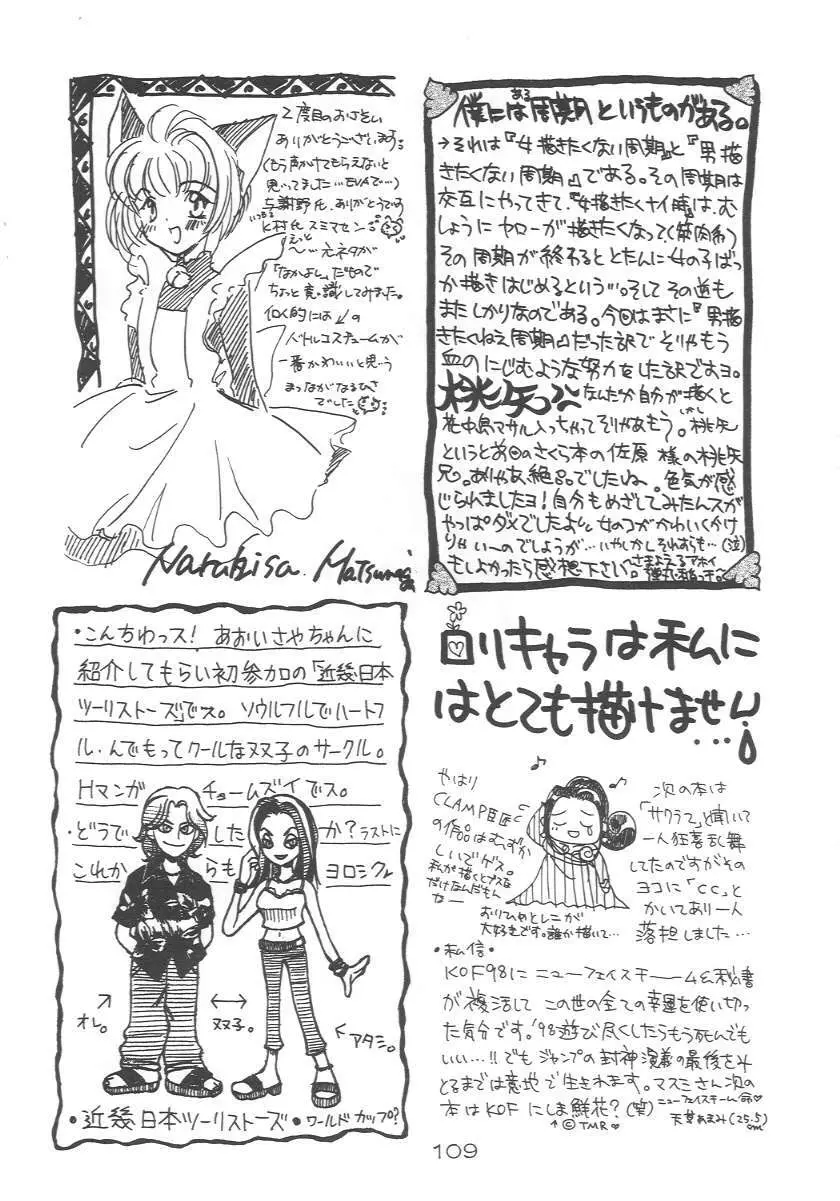 2度目のおさそい
ありがとうございます。
(もう声かけてもらえないと
思ってました…EVAで…)
与謝野氏、ありがとうです
いつも
K村氏スミマセン
えっと
〜…元ネタが
「なかよし」だもので
ちょっと意識してみました。
何的には の
バトルコスチュームが
一番かわいいと思う
まつながなるひさ
でした
Naruhisa. Matsunaga
ある
僕には周期というものがある。
→それは『女描きたくない周期』と『男描
きたくない周期』である。その周期は
交互にやってきて、『女描きたくナイ時』は、む
しょうにヤローが描きたくなって(筋肉希)
その周期が終わるととたんに女の子ばっ
か描きはじめるという…。そしてその逆も
またしかりなのである。今回はまさに『男描
きたくねえ周期』だった訳でそりゃもう
血のにじむような努力をした訳ですヨ。
桃矢っ なんだか自分が描くと
花中島マサル入っちゃってそりゃあもう。しかし桃矢
というと前回のさくら本の佐原様の桃矢
兄。ありゃあ、絶品でしたね。色気が感
じられましたヨ!自分もめざしてみたんスが
やっぱダメでしたよ。女のコがかわいくかけ
りゃいーのでしょうが…いやしかしそれすらも…(泣)
もしよかったら感想下さい。さまよえるアホイ
・こんちわっス! あおいさやちゃんに
紹介してもらい初参加の「近畿日本
ツーリストーズ」でス。ソウルフルでハートフ
ル・んでもってクールな双子のサークル。
Hマンガ チョームズイでス。
・どうで した か?ラストに
これか らも ヨロシク
オレ。
双子。
アタシ。
・近畿日本ツーリストーズ・ワールドカップ?
ロリキャラは私に
はとても描けません
…
やはり
CLAMP巨匠
の作品はむずか
しいでゲス。
私が描くとブスな
だけなんだもん
なー
おりひめとレニが
大好きです。誰か描いて…
次の本は
「サクラで」と聞いて
一人狂喜乱舞
してたのですがその
ヨコに「CC」と
かいてあり一人
落担しました…
・私信・
KOF'98にニューフェイスチームと秘書
が復活してこの世の全ての幸運を使い切っ
た気分です。'98遊び尽くしたらもう死んでも
いい…!!でもジャンプの封神演義の最後をみ
とるまでは意地で生きれます。マスミさん次の
本はKOFにしま鮮花?(笑)
ニューフェイスチーム命♡
↑©TMR♡
天草あまみ(25.5)
cm
109